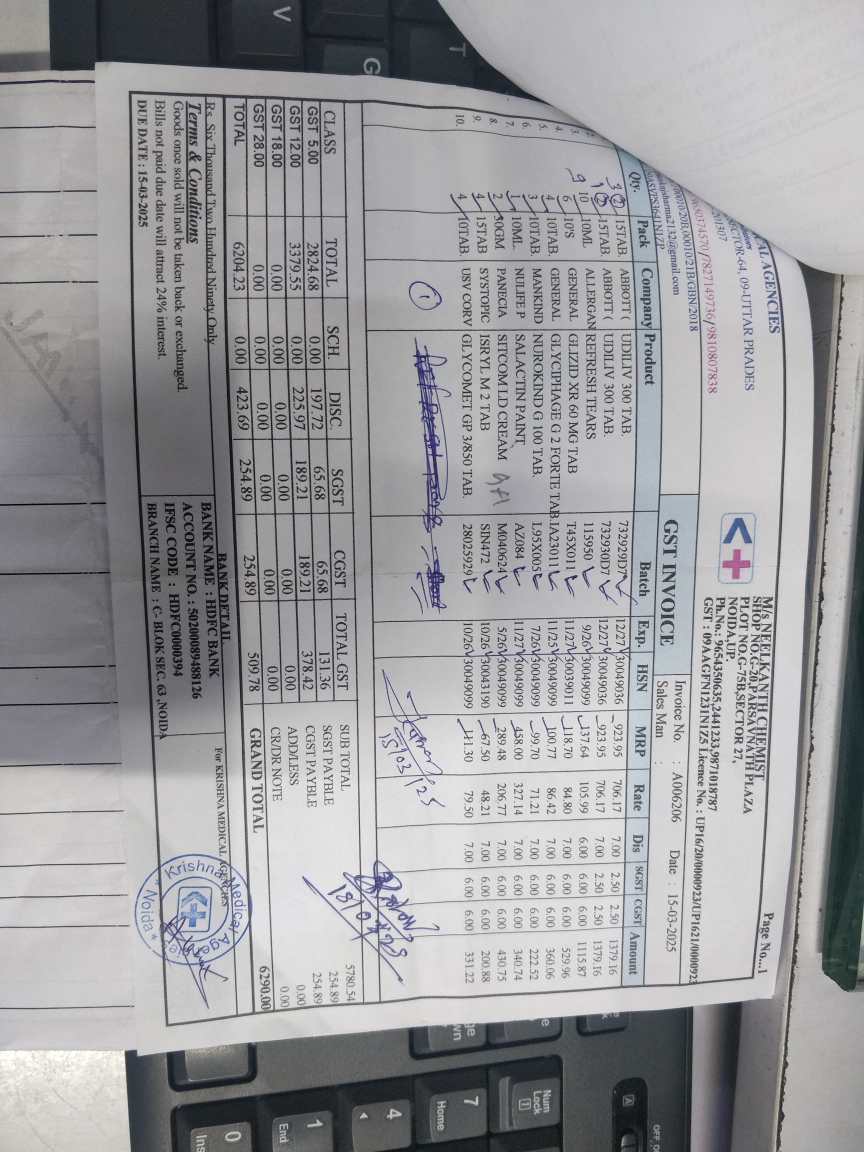 Page No...1
CAL AGENCIES
SECTOR-64, 09-UTTAR PRADES
201307
9650374570/7827149736/9810807838
/00010/20B,00010/21B/GBN/2018
sharma2132@gmail.com
M/s NEELKANTH CHEMIST
SHOP NO.G-20,PARSAVNATH PLAZA
PLOT NO.G-75B,SECTOR 27,
NOIDA,UP.
Ph.No.: 9654350635,2441233,9871018787
GST : 09AAGFN1231N1Z5 Licence No. : UP16/20/0000923/UP1621/0000923
GST INVOICE
Invoice No. : A006206 Date : 15-03-2025
Sales Man :
Qty. Pack Company Product Batch Exp. HSN MRP Rate Dis SGST CGST Amount
2 15TAB. ABBOTT ( UDILIV 300 TAB. 732929D7 12/27 30049036 923.95 706.17 7.00 2.50 2.50 1379.16
2 15TAB. ABBOTT ( UDILIV 300 TAB. 732930D7 12/27 30049036 923.95 706.17 7.00 2.50 2.50 1379.16
3. 10 10ML ALLERGAN REFRESH TEARS 115950 9/26 30049099 137.64 105.99 6.00 6.00 6.00 1115.87
4. 6 10'S GENERAL GLIZID XR 60 MG TAB T45X011 11/27 30039011 118.70 84.80 7.00 6.00 6.00 529.96
4. 4 10TAB. GENERAL GLYCIPHAGE G 2 FORTE TAB IA23011 11/25 30049099 100.77 86.42 7.00 6.00 6.00 360.06
5. 3 10TAB. MANKIND NUROKIND G 100 TAB. L95X005 7/26 30049099 99.70 71.21 7.00 6.00 6.00 222.52
6. 1 10ML. NULIFE P SALACTIN PAINT. AZ084 11/27 30049099 458.00 327.14 7.00 6.00 6.00 340.74
7. 2 30GM PANECIA SITCOM LD CREAM M040624 5/26 30049099 289.48 206.77 7.00 6.00 6.00 430.75
8. 4 15TAB SYSTOPIC ISRYL M 2 TAB SIN472 10/26 30043190 67.50 48.21 7.00 6.00 6.00 200.88
9. 4 10TAB. USV CORV GLYCOMET GP 3/850 TAB. 28025929 10/26 30049099 111.30 79.50 7.00 6.00 6.00 331.22
10.
1
15/03/25
CLASS TOTAL SCH. DISC. SGST CGST TOTAL GST
GST 5.00 2824.68 0.00 197.72 65.68 65.68 131.36
GST 12.00 3379.55 0.00 225.97 189.21 189.21 378.42
GST 18.00 0.00 0.00 0.00 0.00 0.00 0.00
GST 28.00 0.00 0.00 0.00 0.00 0.00 0.00
TOTAL 6204.23 0.00 423.69 254.89 254.89 509.78
SUB TOTAL 5780.54
SGST PAYBLE 254.89
CGST PAYBLE 254.89
ADD/LESS 0.00
CR/DR NOTE 0.00
GRAND TOTAL 6290.00
Rs. Six Thousand Two Hundred Ninety Only
Terms & Conditions
Goods once sold will not be taken back or exchanged.
Bills not paid due date will attract 24% interest.
DUE DATE : 15-03-2025
BANK DETAIL
BANK NAME : HDFC BANK
ACCOUNT NO. : 50200089488126
IFSC CODE : HDFC0000394
BRANCH NAME : C- BLOK SEC. 63 ,NOIDA
For KRISHNA MEDICAL AGENCIES
Krishna Medical Agencies
Noida
V
T
G
Num
Lock
7
Home
4
1
End
0
Ins